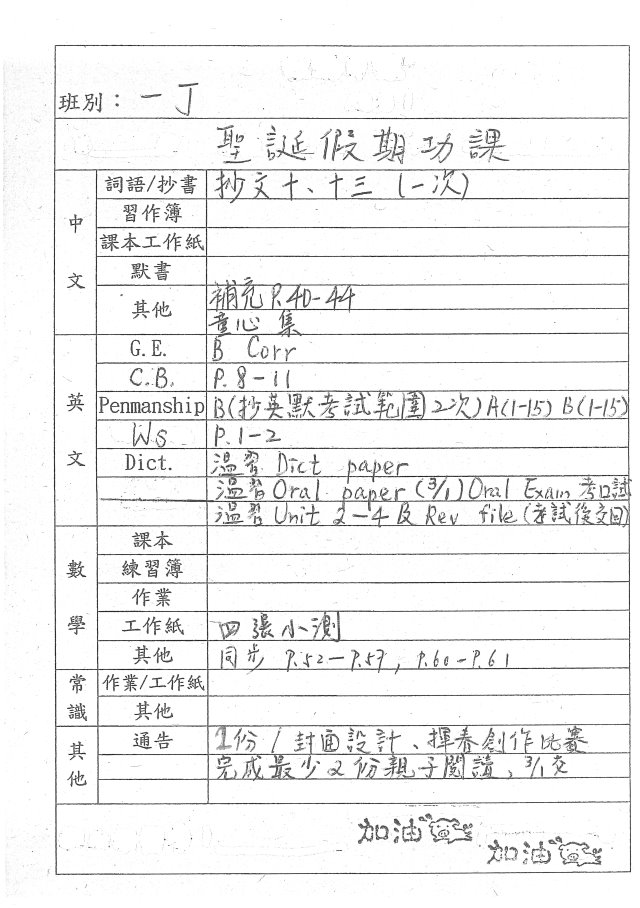 班別：一丁
聖誕假期功課
中文
詞語/抄書 抄文十、十三 (一次)
習作簿
課本工作紙
默書
其他 補充 P.40-44
童心集
英文
G.E. B Corr
C.B. P.8-11
Penmanship B(抄英默考試範圍2次) A(1-15) B(1-15)
Ws P.1-2
Dict. 溫習 Dict paper
溫習 Oral paper (3/1) Oral Exam 考口試
溫習 Unit 2-4 及 Rev file (考試後交回)
數學
課本
練習簿
作業
工作紙 四張小測
其他 同步 P.52-P.57, P.60-P.61
常識
作業/工作紙
其他
其他
通告 1份 / 封面設計、揮春創作比賽
完成最少2份親子閱讀, 3/1交
加油
加油